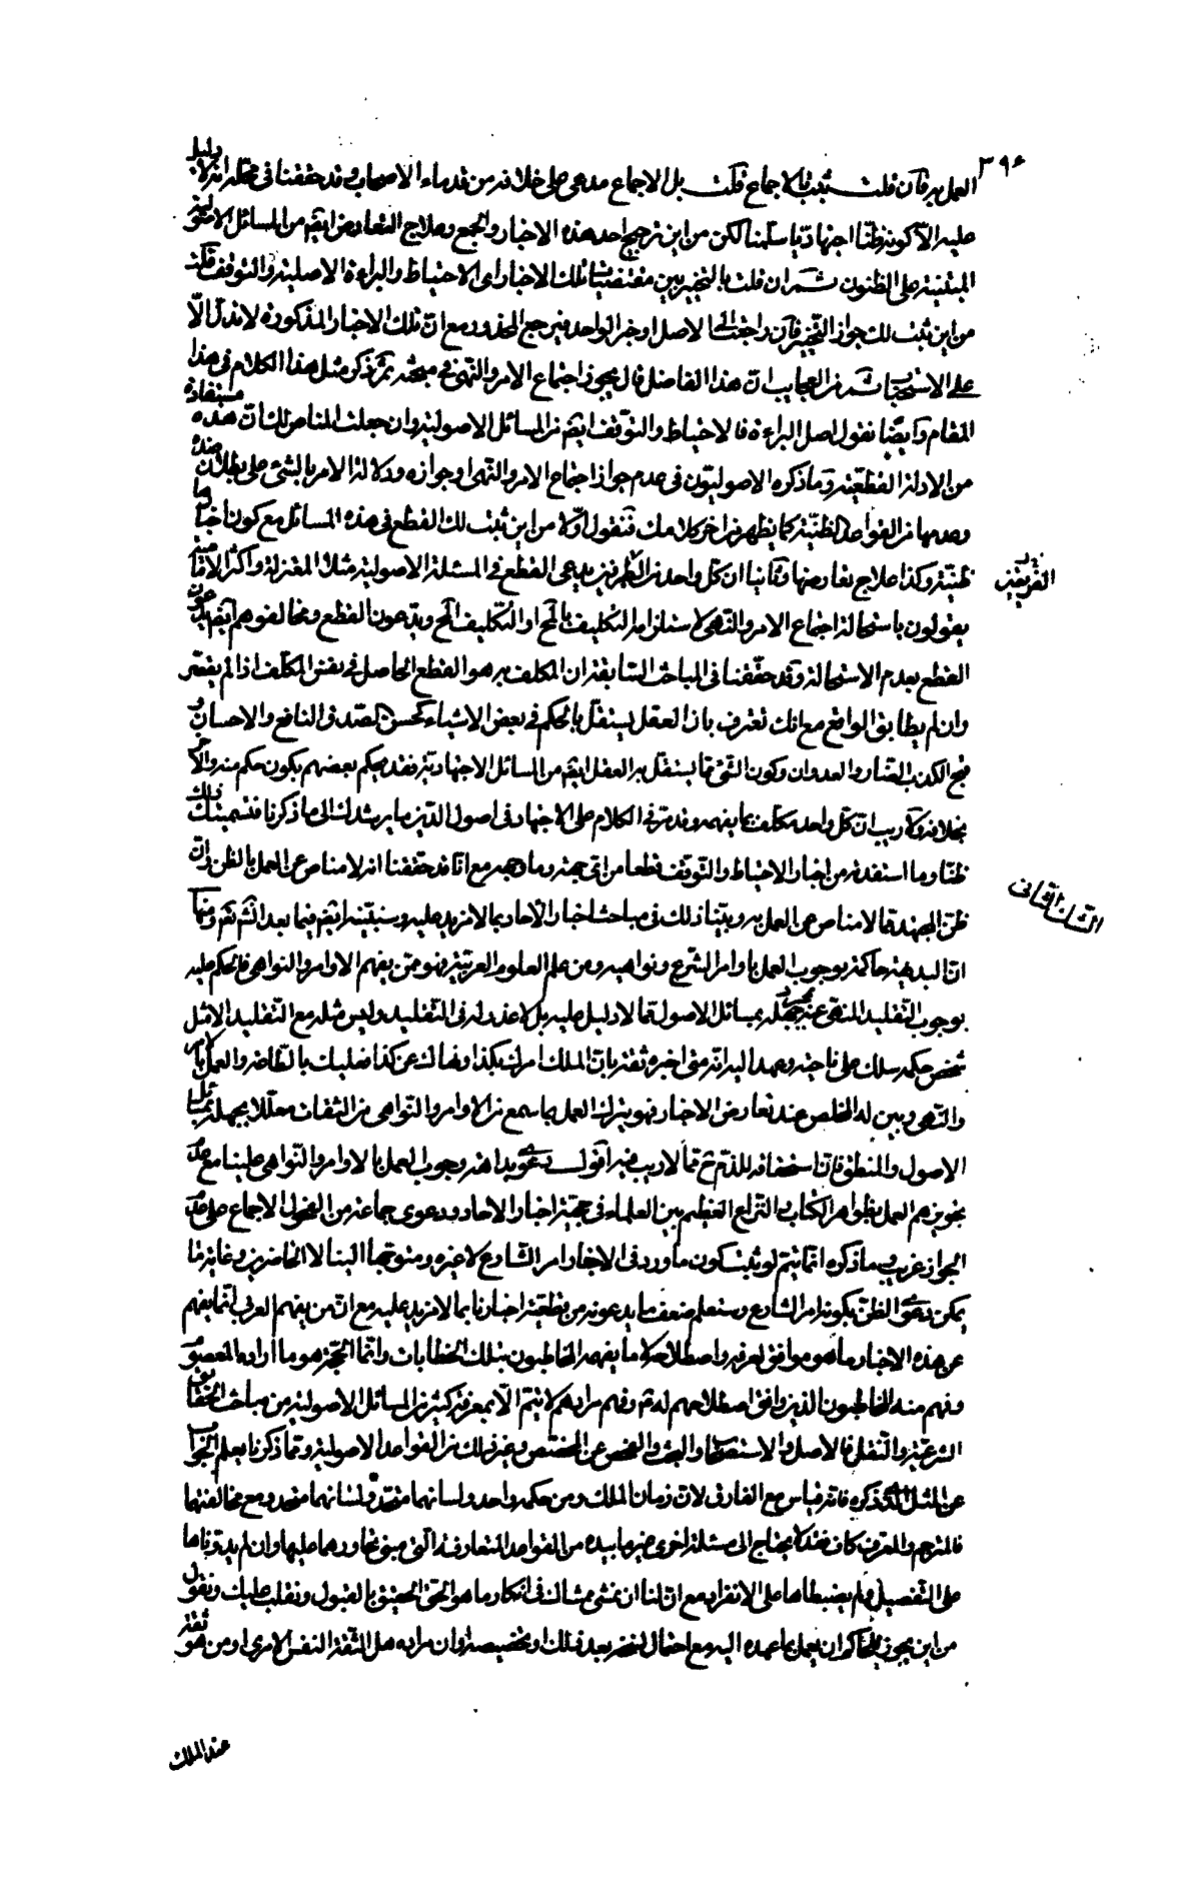 ٣٩٤
العمل به فان قلت ثبت بالاجماع قلت بل الاجماع مدعى على خلافه من قدماء الاصحاب وقد حققنا في محله انه لا دليل
عليه الا كونه ظنا اجتهاديا سلمنا لكن من اين ترجيح احد هذه الاخبار والجمع وعلاج التعارض ايضا من المسائل الاصولية
المبتنية على الظنون ثم ان قلت بالتخيير بين مقتضيات تلك الاخبار اى الاحتياط والبراءة الاصلية والتوقف قلت
من اين ثبت لك جواز التخيير فان راجعت الى الاصل او خبر الواحد فيرجع المحذور مع ان تلك الاخبار المذكورة لا تدل الا
على الاستحباب ثم من العجايب ان هذا الفاضل قال بجواز اجتماع الامر والنهى في مبحثه ثم ذكر مثل هذا الكلام في هذا
المقام وايضا نقول اصل البراءة والاحتياط والتوقف ايضا من المسائل الاصولية وان جعلت المناص لك ان هذه مستفادة
من الادلة القطعية وما ذكره الاصوليون في عدم جواز اجتماع الامر والنهى او جوازه ودلالة الامر بالشئ على بطلان ضده
وعدمها من القواعد الظنية كما يظهر من اخر كلامك فنقول اولا من اين ثبت لك القطع في هذه المسائل مع كون اخبارها
ظنية وكذا علاج تعارضها وثانيا ان كل واحد من الطرفين يدعى القطع في المسئلة الاصولية مثلا المعتزلة واكثر الامامية
يقولون باستحالة اجتماع الامر والنهى لاستلزامه التكليف بالمح او التكليف المح ويدعون القطع ومخالفوهم ايضا يدعون
القطع بعدم الاستحالة وقد حققنا في المباحث السابقة ان المكلف به هو القطع الحاصل في نفس المكلف اذا لم يقصر
وان لم يطابق الواقع مع انك تعترف بان العقل يستقل بالحكم في بعض الاشياء كحسن الصدق النافع والاحسان و
قبح الكذب الضار والعدوان وكون الشئ مما يستقل به العقل ايضا من المسائل الاجتهادية فقد يحكم بعضهم بكون حكم منه والاخر
بخلافه ولا ريب ان كل واحد مكلف بما يفهمه وقد مر في الكلام على الاجتهاد في اصول الدين ما يرشدك الى ما ذكرنا فتسميتك ذلك
ظنا وما استفدته من اخبار الاحتياط والتوقف قطعا من اى جهة وما وجهه مع انا قد حققنا انه لا مناص عن العمل بالظن وان
ظن المجتهد مما لا مناص عن العمل به وبينا ذلك في مباحث اخبار الاحاد بما لا مزيد عليه وسنبينه ايضا فيما بعد انش تم ومنها
ان البديهة حاكمة بوجوب العمل باوامر الشرع ونواهيه ومن علم العلوم العربية فهو ممن يفهم الاوامر والنواهى فالحكم عليه
بوجوب التقليد المنهى عنه بمجرد جهله بمسائل الاصول مما لا دليل عليه بل لا عذر له في التقليد وليس مثله مع التقليد الا مثل
شخص حكمه سلك على ناحية وعهد اليه انه متى اخبره ثقة بان الملك امرك بكذا ونهاك عن كذا فعليك بالطاعة والعمل بالامر
والنهى وبين له المخلص عند تعارض الاخبار فهو يترك العمل بما سمع من الاوامر والنواهى من الثقات معللا بجهله بمسائل
الاصول والمنطق فان استحقاقه للذم ح مما لا ريب فيه اقول دعوى بداهة وجوب العمل بالاوامر والنواهى علينا مع عدم
تجويزهم العمل بظواهر الكتاب والنزاع العظيم بين العلماء في حجية اخبار الاحاد ودعوى جماعة من الفحول الاجماع على عدم
الجواز غريب وما ذكره انما يتم لو ثبت كون ما ورد في الاخبار امر الشارع لا غيره ومتوجها الينا لا الحاضرين وغاية ما
يمكن دعوى الظن بكونه امر الشارع وستعلم ضعف ما يدعونه من قطعية اخبارنا بما لا مزيد عليه مع ان من يفهم العربى انما يفهم
من هذه الاخبار ما هو موافق لعرفه واصطلاحه لا ما يفهمه المخاطبون بتلك الخطابات وانما الحجة هو ما اراده المعصوم
وفهم منه المخاطبون الذين وافق اصطلاحهم له ع وفهم مرادهم لا يتم الا بمعرفة كثير من المسائل الاصولية من مباحث الحقايق
الشرعية والنقل والاصل والاستصحاب والبحث والفحص عن المخصص وغير ذلك من القواعد الاصولية ومما ذكرنا يعلم الجواب
عن المثل الذى ذكره فانه قياس مع الفارق لان زمان الملك ومن حكمه واحد ولسانهما متحد ولسانهما متحد ومع مخالفتهما
فالمترجم والمعرف كاف فقد لا يحتاج الى مسئلة اخرى غير ما بيده من القواعد المتعارفة التى مبنى تحاورهما عليها وان لم يدونوها
على التفصيل ولم يضبطاها على الانفراد مع ان لنا ان نمشى ممشاك في انكار ما هو الحق الحقيق بالقبول ونقلب عليك ونقول
من اين يجوز للحاكم ان يعمل بما عهده اليه مع احتمال نسخه بعد ذلك او تخصيصه وان مراده هل الثقة النفس الامرى او من هو ثقة
عند الملك
الفريقين
الشك الثانى